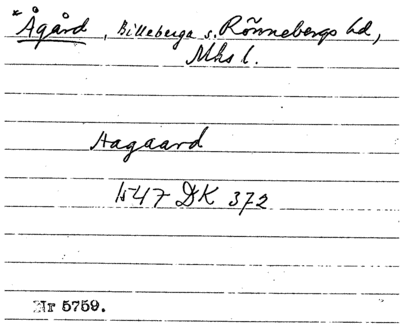 * Ågård, Billeberga s. Rönnebergs hd,
Mhs l.
Aagaard
1547 DK 372
Nr 5759.